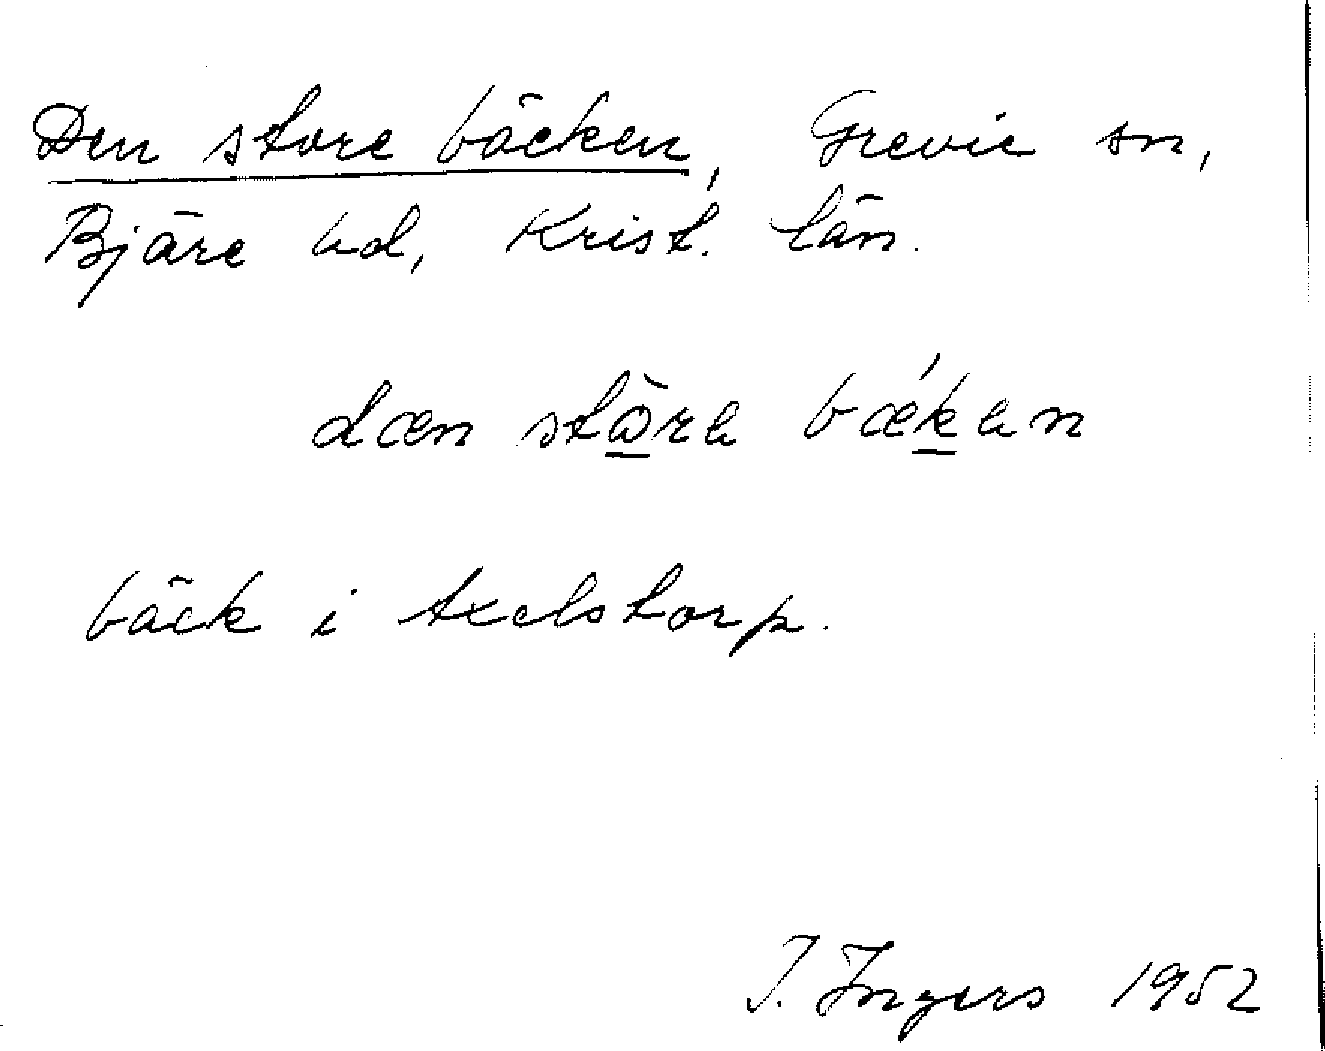 Den store bäcken, Grevie sn,
Bjäre hd, Krist. län.
dæn stòra bǽkan
bäck i Axelstorp.
I. Ingers 1952